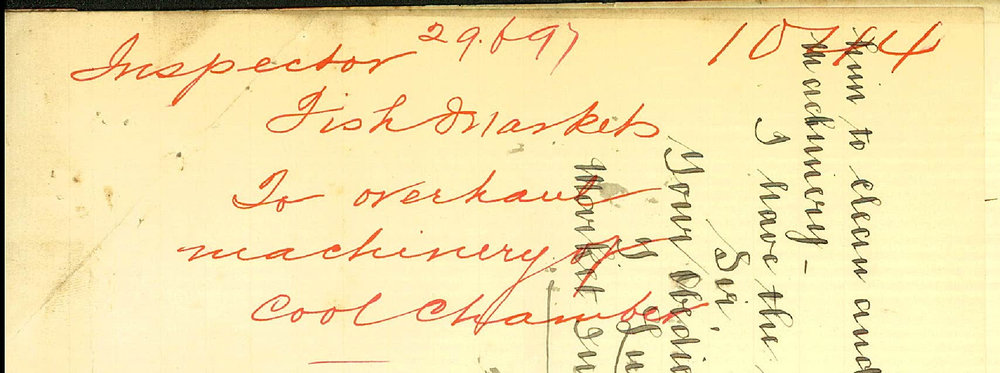 29.6 97
Inspector
Fish Markets
To overhaul
machinery of
Cool Chamber
him to clean and
machinery -
I have the
Sir,
Your Obedie
Market In